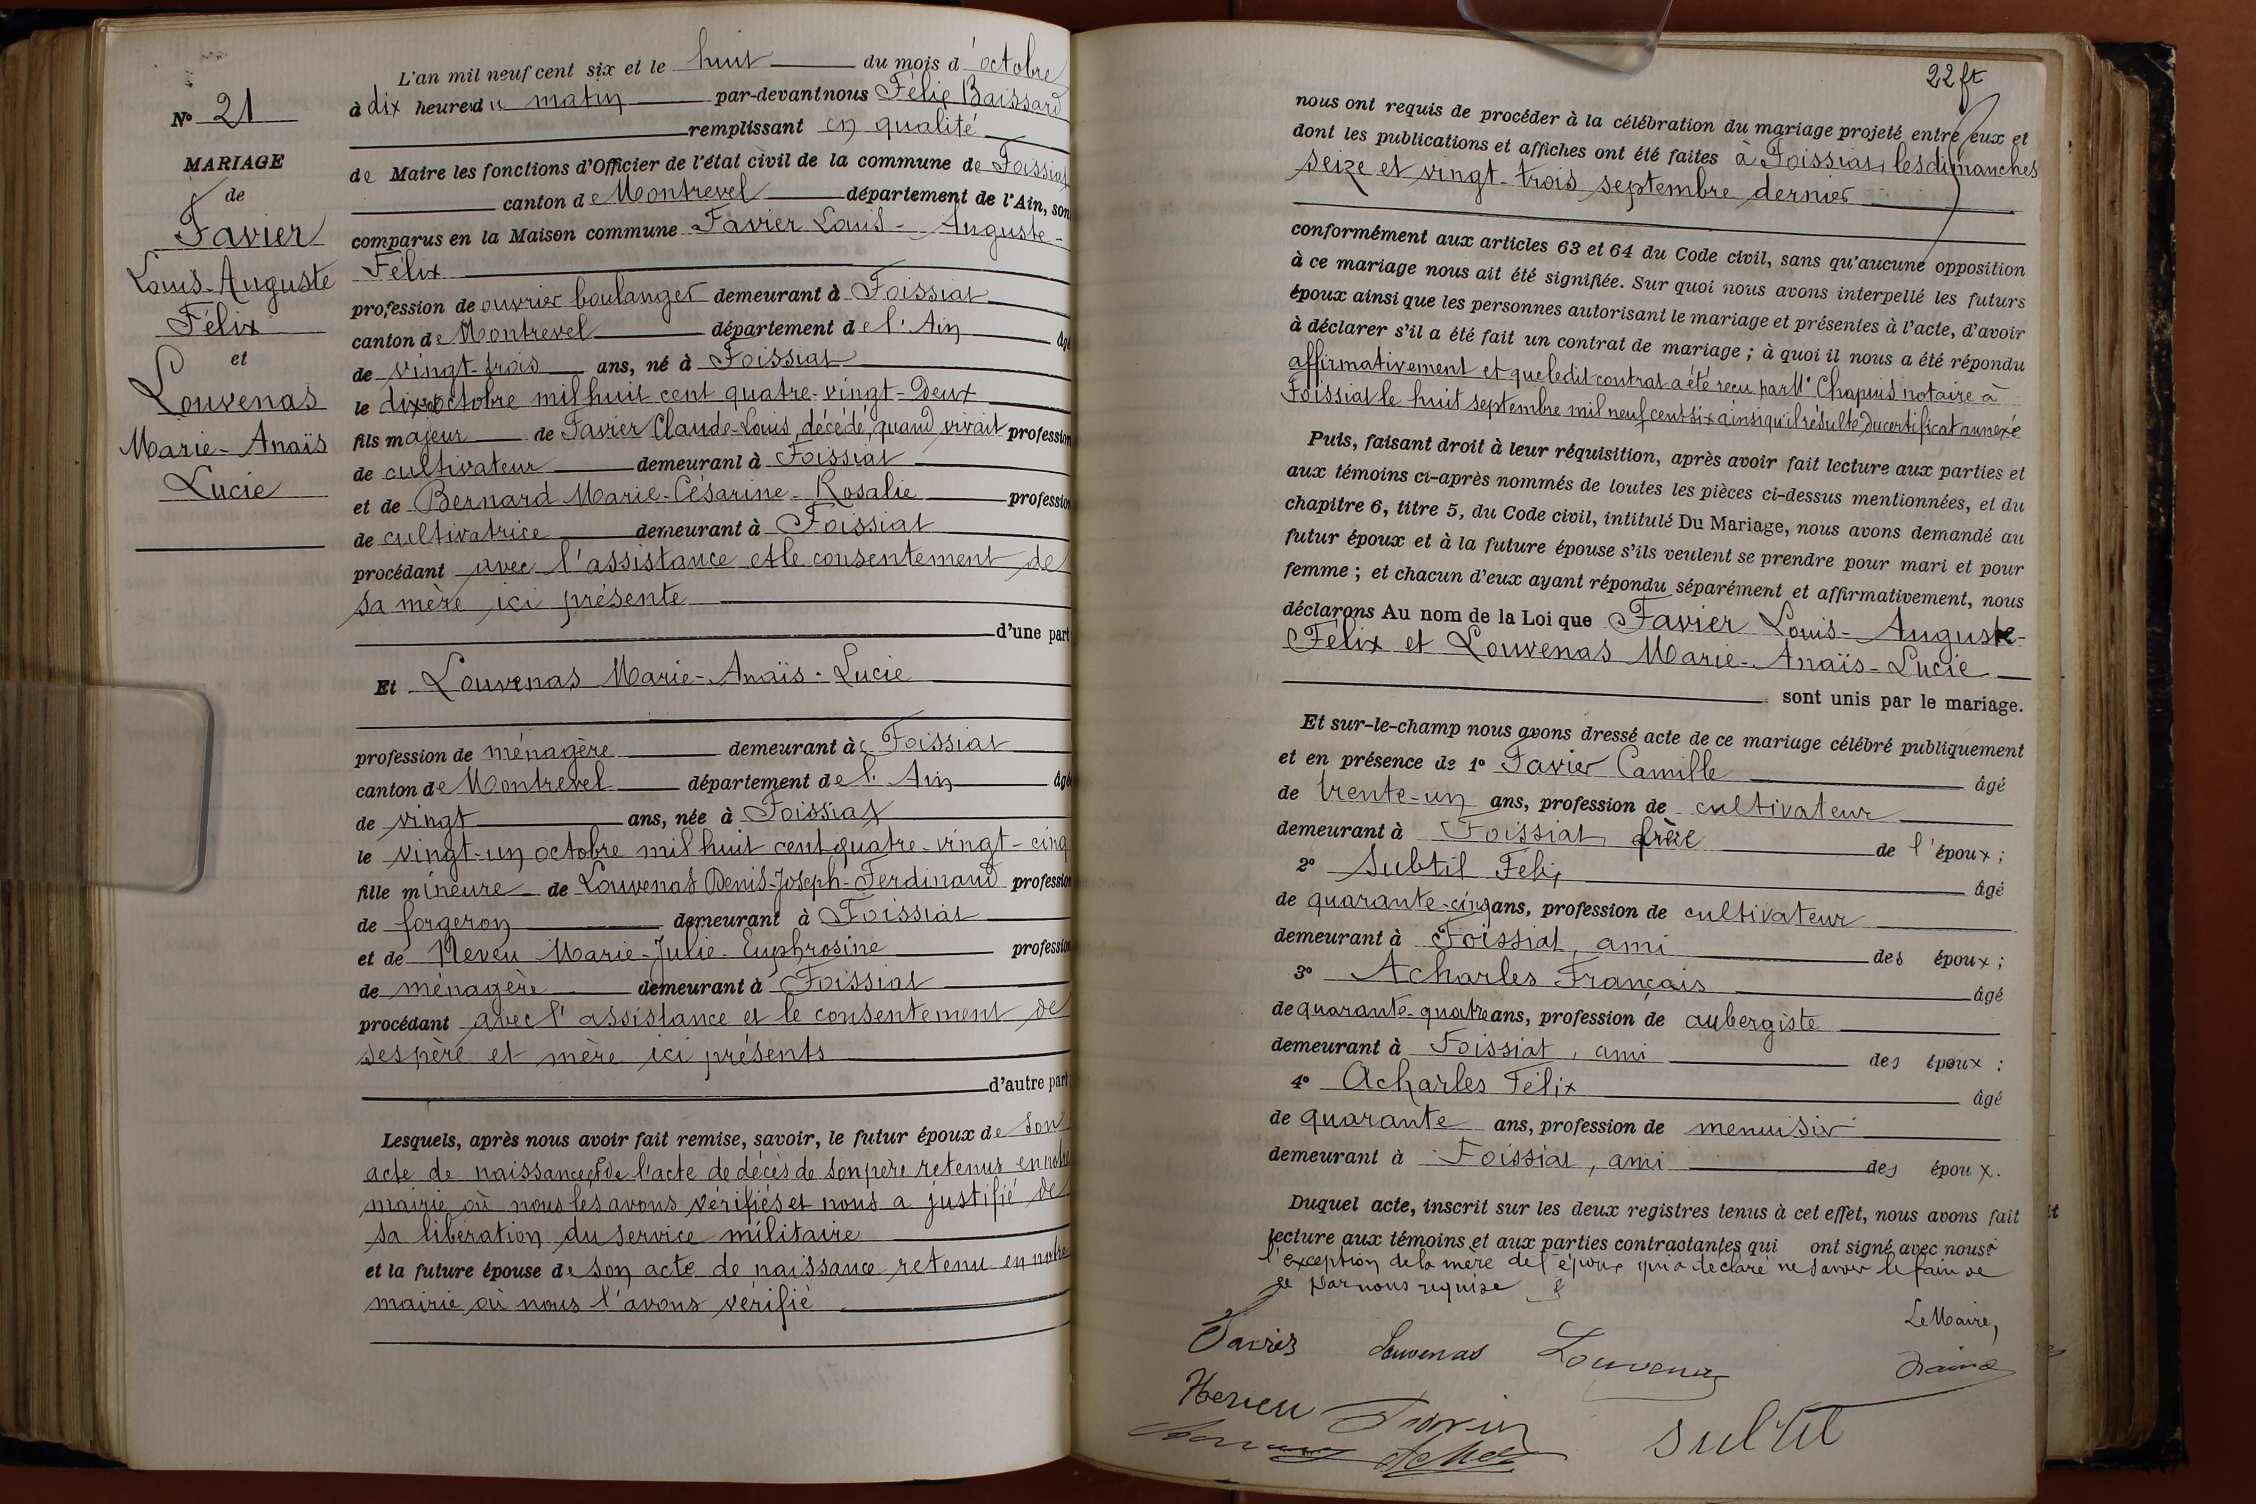 N° 21
MARIAGE
de
Favier
Louis-Auguste
Félix
et
Louvenas
Marie-Anaïs
Lucie
L'an mil neuf cent six et le huit du mois d'octobre
à dix heures du matin par-devant nous Félix Baissard
remplissant en qualité
de Maire les fonctions d'Officier de l'état civil de la commune de Foissiat
canton de Montrevel département de l'Ain, son
comparus en la Maison commune Favier Louis-Auguste-
Félix
profession de ouvrier boulanger demeurant à Foissiat
canton de Montrevel département de l'Ain âgé
de vingt-trois ans, né à Foissiat
le octobre mil huit cent quatre-vingt-deux
fils majeur de Favier Claude-Louis, décédé, quand vivait profession
de cultivateur demeurant à Foissiat
et de Bernard Marie-Césarine-Rosalie profession
de cultivatrice demeurant à Foissiat
procédant avec l'assistance et le consentement de
sa mère ici présente
d'une part
Et Louvenas Marie-Anaïs-Lucie
profession de ménagère demeurant à Foissiat
canton de Montrevel département de l'Ain âgé
de vingt ans, née à Foissiat
le vingt-un octobre mil huit cent quatre-vingt-cinq
fille mineure de Louvenas Denis-Joseph-Ferdinand profession
de forgeron demeurant à Foissiat
et de Neveu Marie-Julie-Euphrosine profession
de ménagère demeurant à Foissiat
procédant avec l'assistance et le consentement de
ses père et mère ici présents
d'autre part
Lesquels, après nous avoir fait remise, savoir, le futur époux de son
acte de naissance, de l'acte de décès de son père retenus en notre
mairie où nous les avons vérifiés et nous a justifié de
sa libération du service militaire
et la future épouse de son acte de naissance retenu en notre
mairie où nous l'avons vérifié
22 ft
nous ont requis de procéder à la célébration du mariage projeté entre eux et
dont les publications et affiches ont été faites à Foissiat, les dimanches
seize et vingt-trois septembre dernier
conformément aux articles 63 et 64 du Code civil, sans qu'aucune opposition
à ce mariage nous ait été signifiée. Sur quoi nous avons interpellé les futurs
époux ainsi que les personnes autorisant le mariage et présentes à l'acte, d'avoir
à déclarer s'il a été fait un contrat de mariage ; à quoi il nous a été répondu
affirmativement et que ledit contrat a été reçu par Me Chapuis notaire à
Foissiat le huit septembre mil neuf cent six ainsi qu'il résulte du certificat annexé
Puis, faisant droit à leur réquisition, après avoir fait lecture aux parties et
aux témoins ci-après nommés de toutes les pièces ci-dessus mentionnées, et du
chapitre 6, titre 5, du Code civil, intitulé Du Mariage, nous avons demandé au
futur époux et à la future épouse s'ils veulent se prendre pour mari et pour
femme ; et chacun d'eux ayant répondu séparément et affirmativement, nous
déclarons Au nom de la Loi que Favier Louis-Auguste-
Félix et Louvenas Marie-Anaïs-Lucie
sont unis par le mariage.
Et sur-le-champ nous avons dressé acte de ce mariage célébré publiquement
et en présence de 1° Favier Camille âgé
de trente-un ans, profession de cultivateur
demeurant à Foissiat frère de l'époux ;
2° Subtil Félix âgé
de quarante-cinq ans, profession de cultivateur
demeurant à Foissiat, ami des époux ;
3° Acharles Français âgé
de quarante-quatre ans, profession de aubergiste
demeurant à Foissiat, ami des époux ;
4° Acharles Félix âgé
de quarante ans, profession de menuisier
demeurant à Foissiat, ami des époux.
Duquel acte, inscrit sur les deux registres tenus à cet effet, nous avons fait
lecture aux témoins et aux parties contractantes qui ont signé avec nous à
l'exception de la mère de l'époux qui a déclaré ne savoir le faire de
ce par nous requise
Le Maire,
Favier Louvenas Louvenas
Neveu Favier Subtil